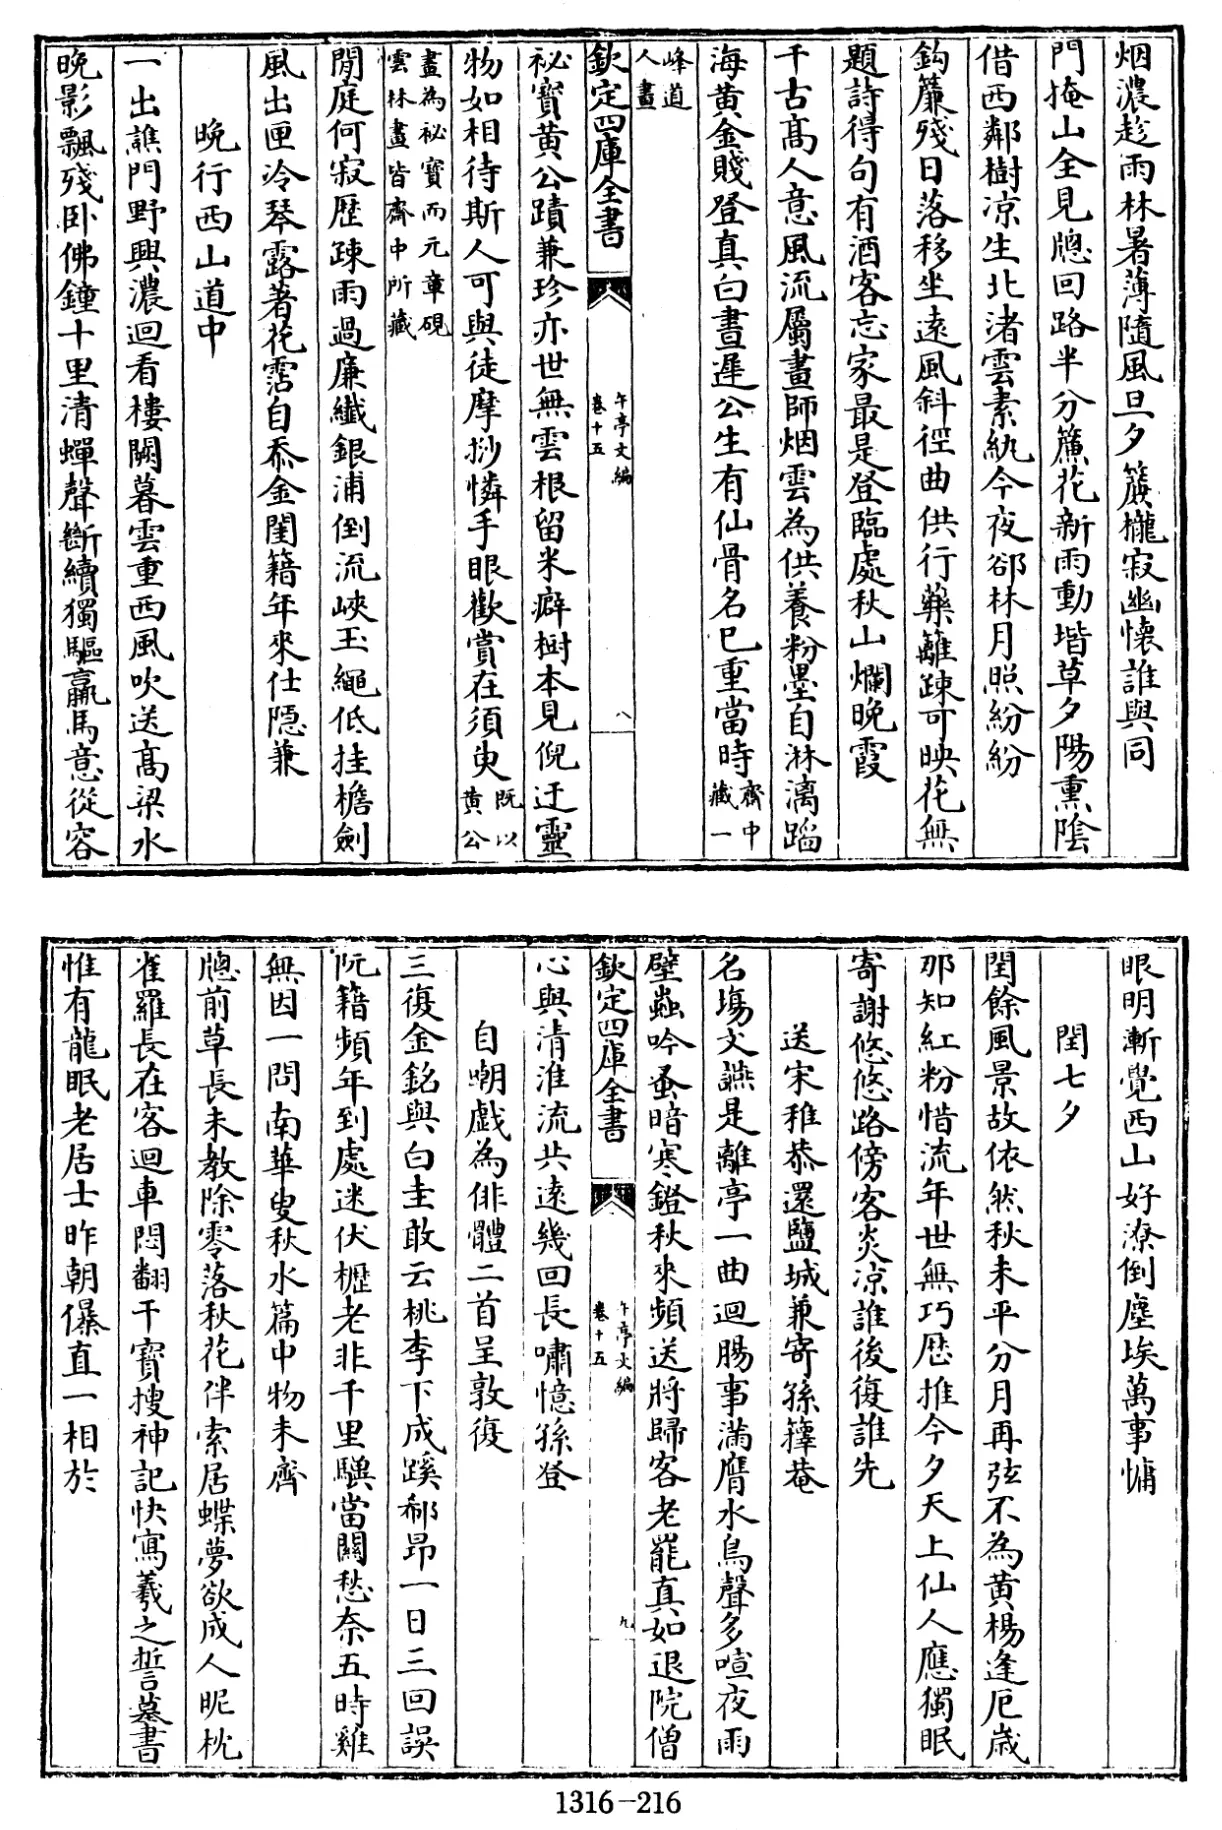 烟濃趁雨林暑薄隨風旦夕簾櫳寂幽懷誰與同
門掩山全見牕回路半分簾花新雨動堦草夕陽熏陰
借西鄰樹凉生北渚雲素紈今夜郤林月照紛紛
鈎簾殘日落移坐遠風斜徑曲供行藥籬踈可映花無
題詩得句有酒客忘家最是登臨處秋山爛晚霞
千古髙人意風流屬畫師烟雲為供養粉墨自淋漓蹈
海黄金賤登真白晝遲公生有仙骨名已重當時齋中藏一
峰道人畫
欽定四庫全書
午亭文編
卷十五
八
祕寳黄公蹟兼珍亦世無雲根留米癖樹本見倪迂靈
物如相待斯人可與徒摩挱憐手眼歡賞在須臾既以黄公
畫為祕寳而元章硯雲林畫皆齋中所藏
閒庭何寂歴踈雨過廉纖銀浦倒流峽玉繩低挂檐劍
風出匣冷琴露著花霑自忝金閨籍年來仕隱兼
晚行西山道中
一出譙門野興濃迴看樓闕暮雲重西風吹送髙梁水
晚影飄殘卧佛鐘十里清蟬聲斷續獨驅羸馬意從容
眼明漸覺西山好潦倒塵埃萬事慵
閏七夕
閏餘風景故依然秋未平分月再弦不為黄楊逢厄歳
那知紅粉惜流年世無巧厯推今夕天上仙人應獨眠
寄謝悠悠路傍客炎凉誰後復誰先
送宋稚恭還鹽城兼寄孫籜菴
名塲文讌是離亭一曲迴腸事滿膺水鳥聲多喧夜雨
壁蟲吟蚤暗寒鐙秋來頻送將歸客老罷真如退院僧
欽定四庫全書
午亭文編
卷十五
九
心與清淮流共遠幾回長嘯憶孫登
自嘲戲為俳體二首呈敦復
三復金銘與白圭敢云桃李下成蹊郗昂一日三回誤
阮籍頻年到處迷伏櫪老非千里驥當關愁奈五時雞
無因一問南華叟秋水篇中物未齊
牕前草長未教除零落秋花伴索居蝶夢欲成人昵枕
雀羅長在客迴車悶翻干寳搜神記快寫羲之誓墓書
惟有龍眠老居士昨朝儤直一相於
1316-216